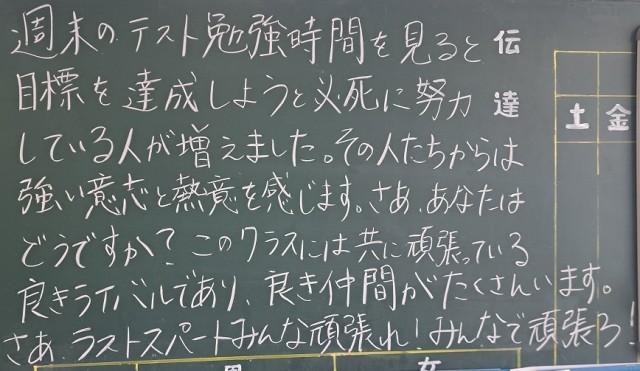 週末のテスト勉強時間を見ると
目標を達成しようと必死に努力
している人が増えました。その人たちからは
強い意志と熱意を感じます。さあ、あなたは
どうですか？このクラスには共に頑張っている
良きライバルであり、良き仲間がたくさんいます。
さあラストスパートみんな頑張れ！みんなで頑張ろう！
伝達
土 金
男 女